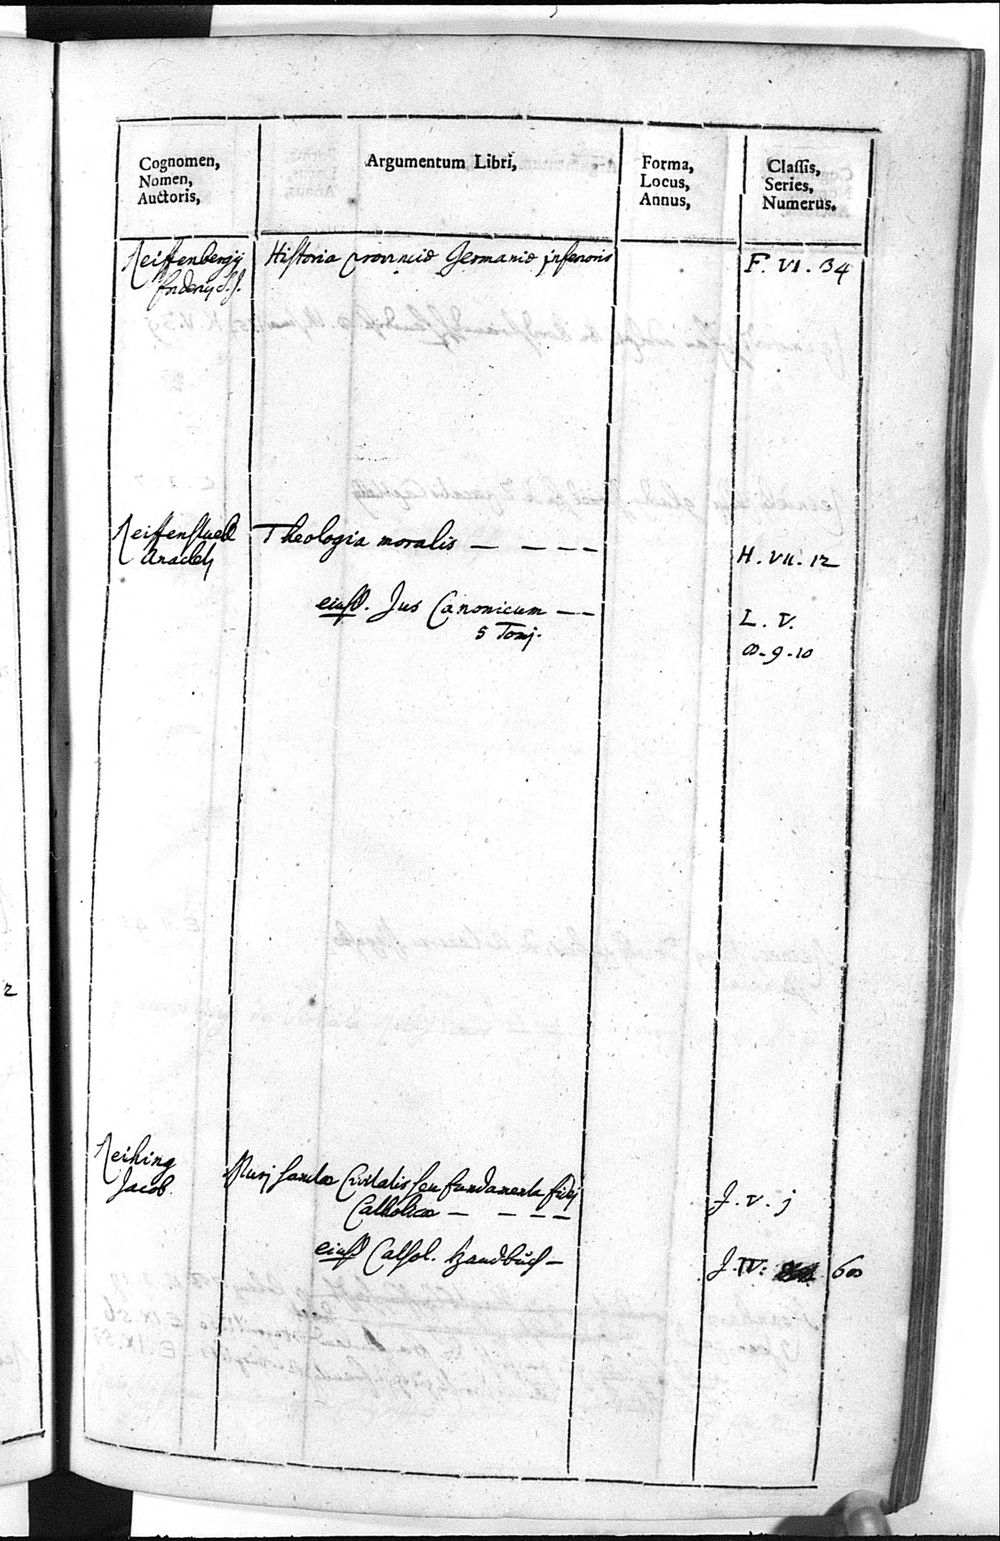 Cognomen,
Nomen,
Auctoris,
Argumentum Libri,
Forma,
Locus,
Annus,
Classis,
Series,
Numerus.
Reiffenbergij
S.J.
Historia provinciæ Germaniæ inferioris
F. VI. 34
Reiffenstuell
Anaclet
Theologia moralis — — — —
H. VII. 12
eiusd. Jus Canonicum — —
5 Tomj.
L. V.
8-9-10
Reihing
Jacob.
Murj sanctæ Civitatis seu fundamenta fidej
Catholicæ — — — —
J. V. j
eiusd. Cathol. Handbuch —
J. IV: 60
2